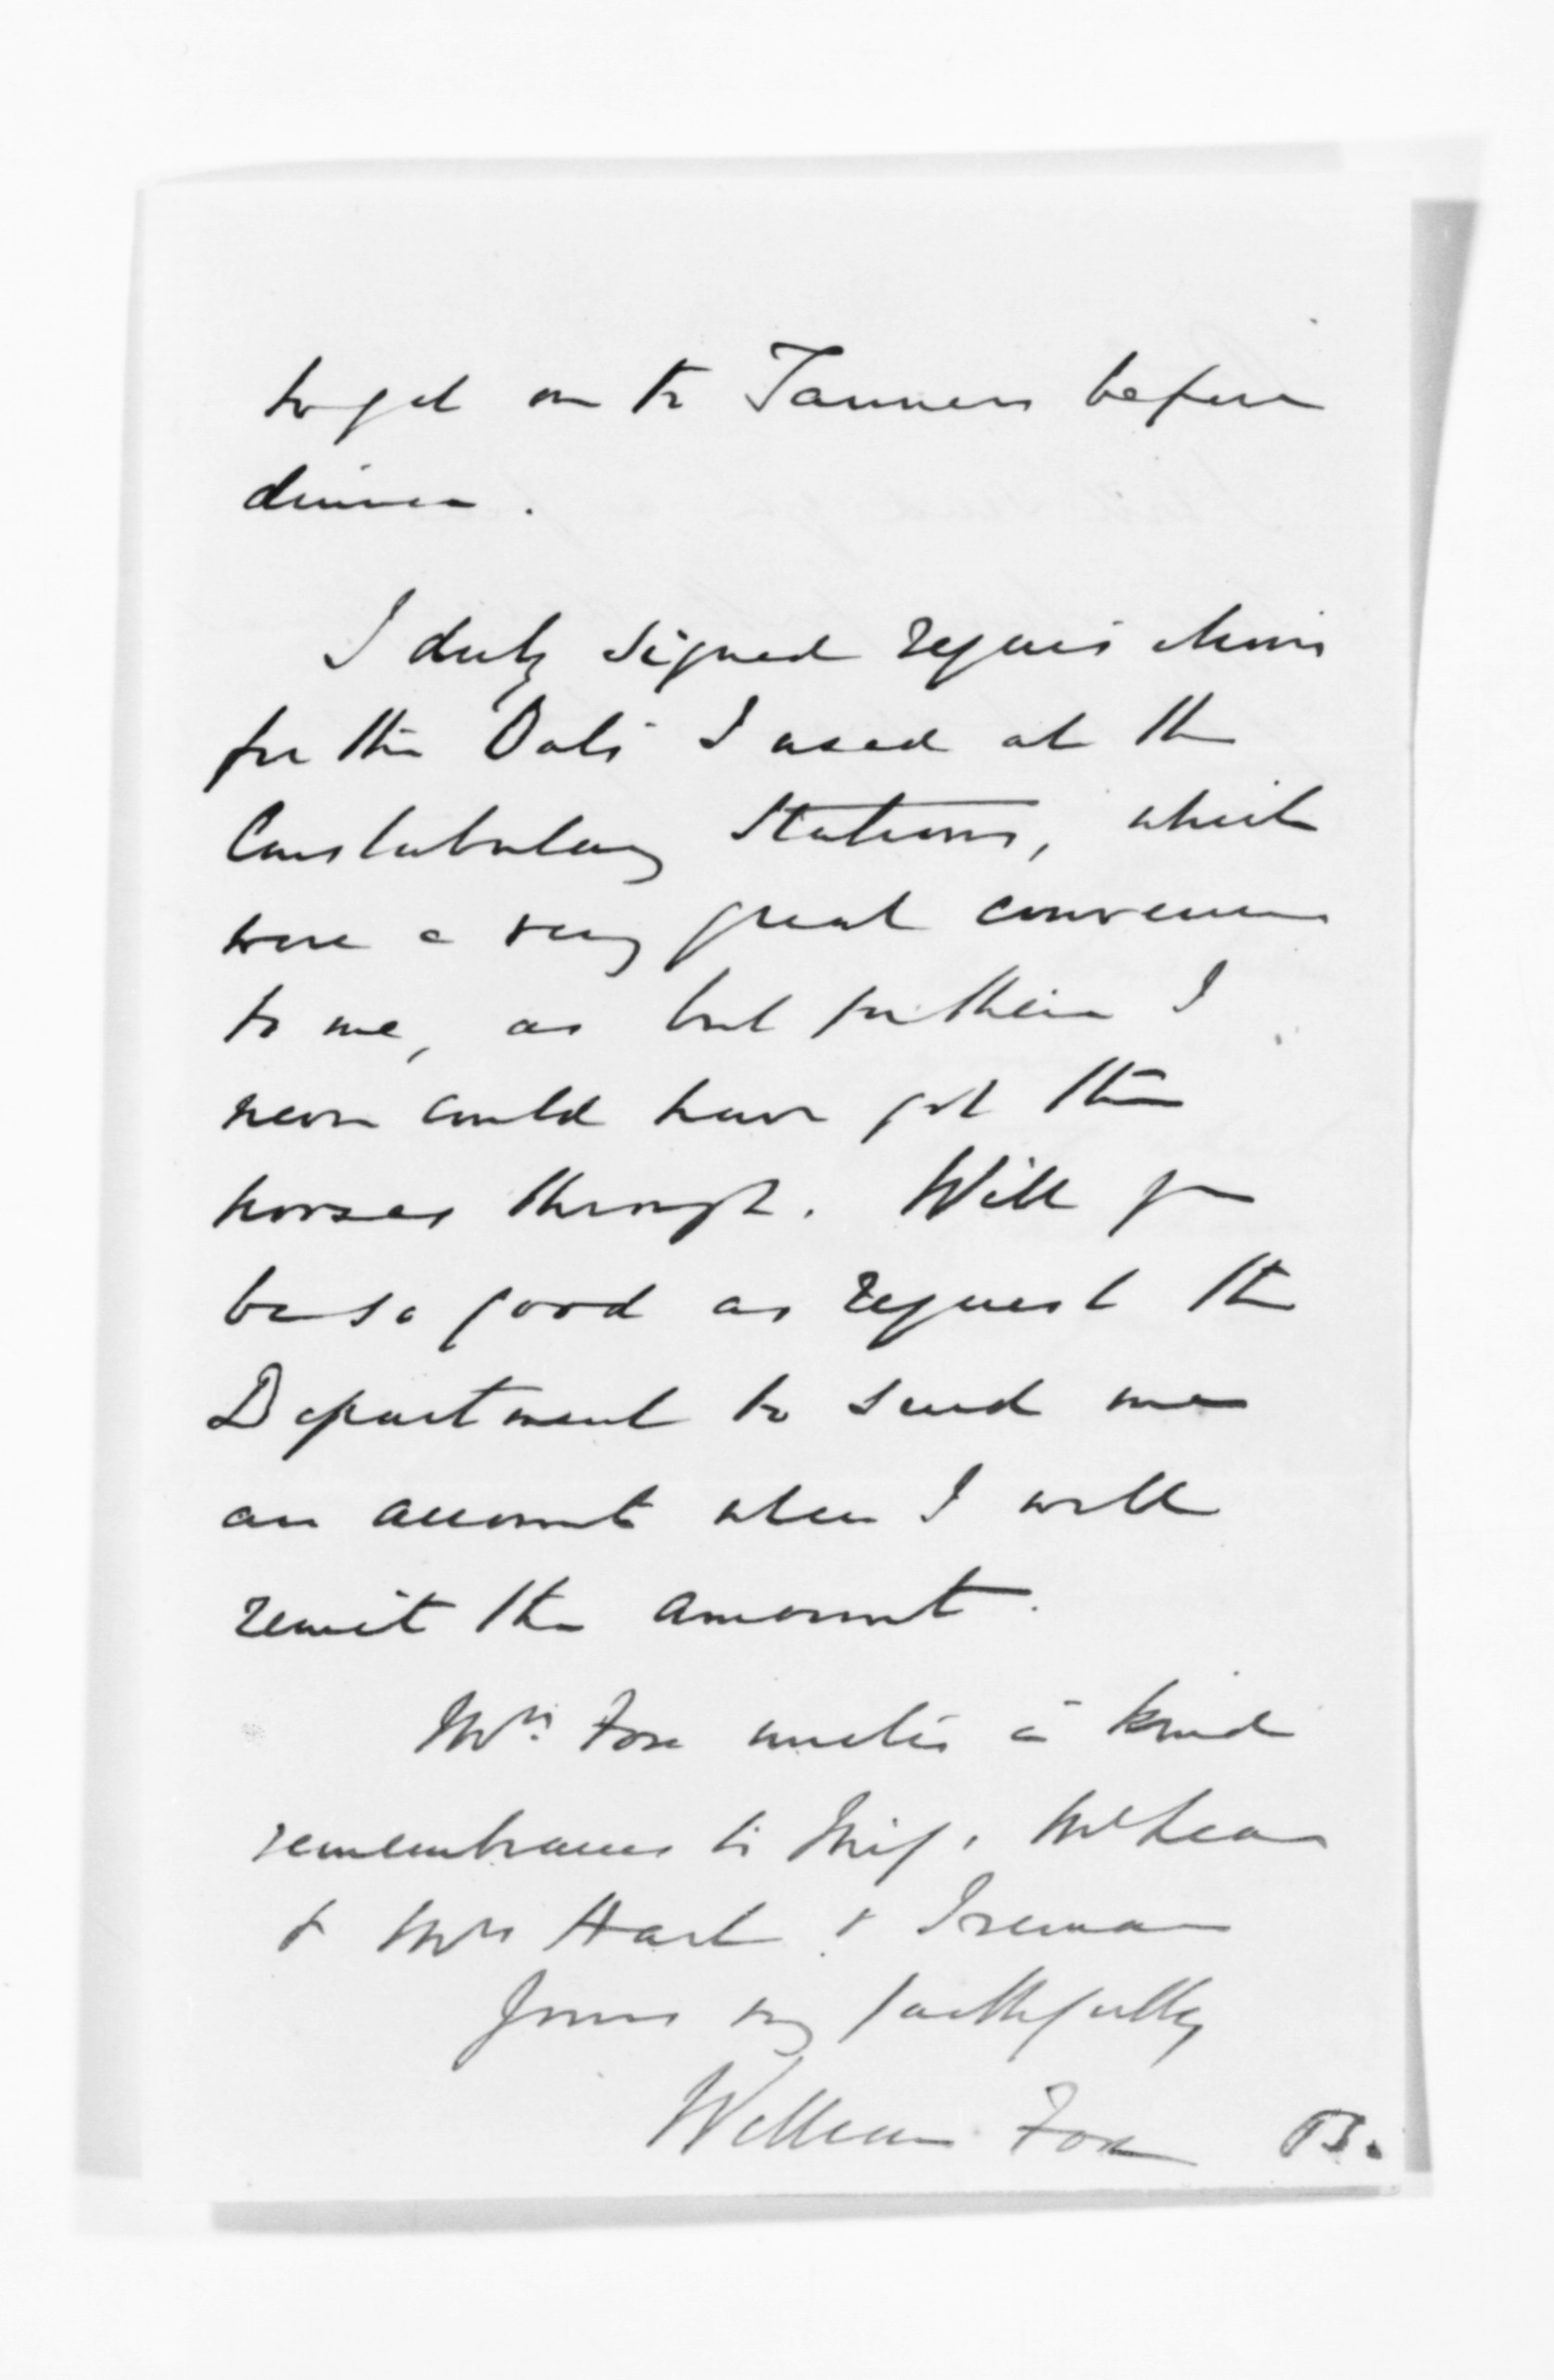 to get on to Tanners before
dinner.
I duly signed requisitions
for the Oats I used at the
Constabulary Stations, which
were a very great convenience
to me, as but for them I
never could have got the
horses through. Will you
be so good as request the
Department to send me
an account when I will
remit the amount.
Mrs. Fox unites in kind
remembrances to Miss McLean
& Mrs Hart &
Yours very faithfully
William Fox B.